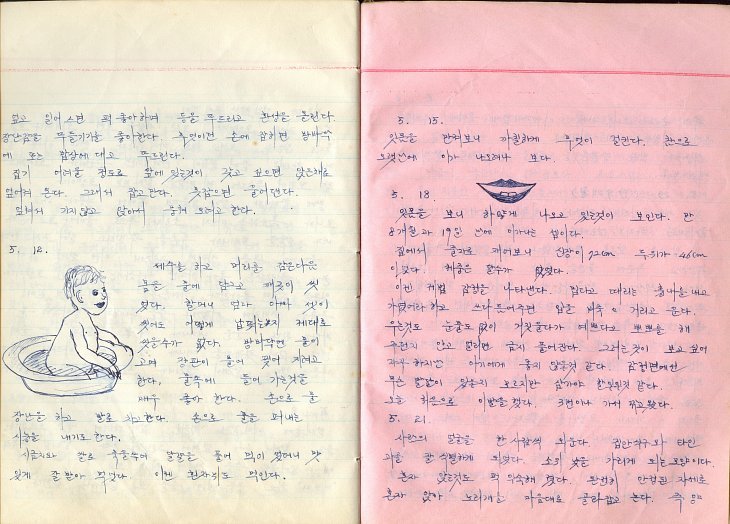 업고 일어스면 퍽 좋아하며 등을 두드리고 환성을 올린다.
장난감을 두들기기를 좋아한다. 무엇이건 손에 잡히면 방바닥
에 또는 밥상에 대고 두드린다.
집기 어려울 정도로 앞에 있는것이 갖고 싶으면 앉은채로
그래서 잡고만다. 못잡으면 울어댄다.
앉혀서 기지않고 앉아서 옮겨 오려고 한다.
5. 12.
세수를 하고 머리를 감은다음
몸을 물에 담그고 깨끗이 씻
었다. 할머니 엄마 아빠 셋이
씻어도 어떻게 납피는지 제대로
씻을수가 없다. 방바닥은 물이
고여 장판이 물어 찢어 지려고
한다. 물속에 들어 가는것을
매우 좋아 한다. 손으로 물
장난을 하고 발로 차고한다. 손으로 물을 퍼내는
시늉을 내기도 한다.
달걀을 풀어 먹이 었더니 맛
있게 잘 받아 먹었다. 이젠 흰자위도 먹인다.
5. 15.
잇몸을 만져보니 까칠하게 무엇이 걸린다. 참으로
오랫만에 이가 나오려나 보다.
5. 18.
잇몸을 보니 하얗게 나오고 있는것이 보인다. 만
8개월 과 19일 만에 이가나는 셈이다.
집에서 줄자로 재어보니 신장이 72cm 두위가 46cm
이었다. 체중은 알수가 없었다.
이젠 제법 감정을 나타낸다. 밉다고 때리는 흉내를 내고
가엾어라 하고 쓰다듬어주면 입을 삐죽 이 거리고 운다.
우는것도 눈물도 없이 거짓울다가 예쁘다고 뽀뽀를 해
주던지 안고 달리면 금시 풀어진다. 그러는것이 보고 싶어
자꾸 하지만 아기에게 좋지 않을것 같다. 감정면에선
무슨 발달이 있을지 모르지만 삼가야 한될것 같다.
오늘 처음으로 이발을 했다. 3번이나 가서 깎고왔다.
5. 21.
사람의 얼굴을 한 사람씩 외운다. 집안식구와 타인
과를 잘 식별하게 되었다. 소위 낯을 가리게 되는모양이다.
혼자 앉는것도 퍽 익숙해 졌다. 완전히 안정된 자세로
혼자 앉아 노리개를 마음대로 골라잡고 논다. 즉 양